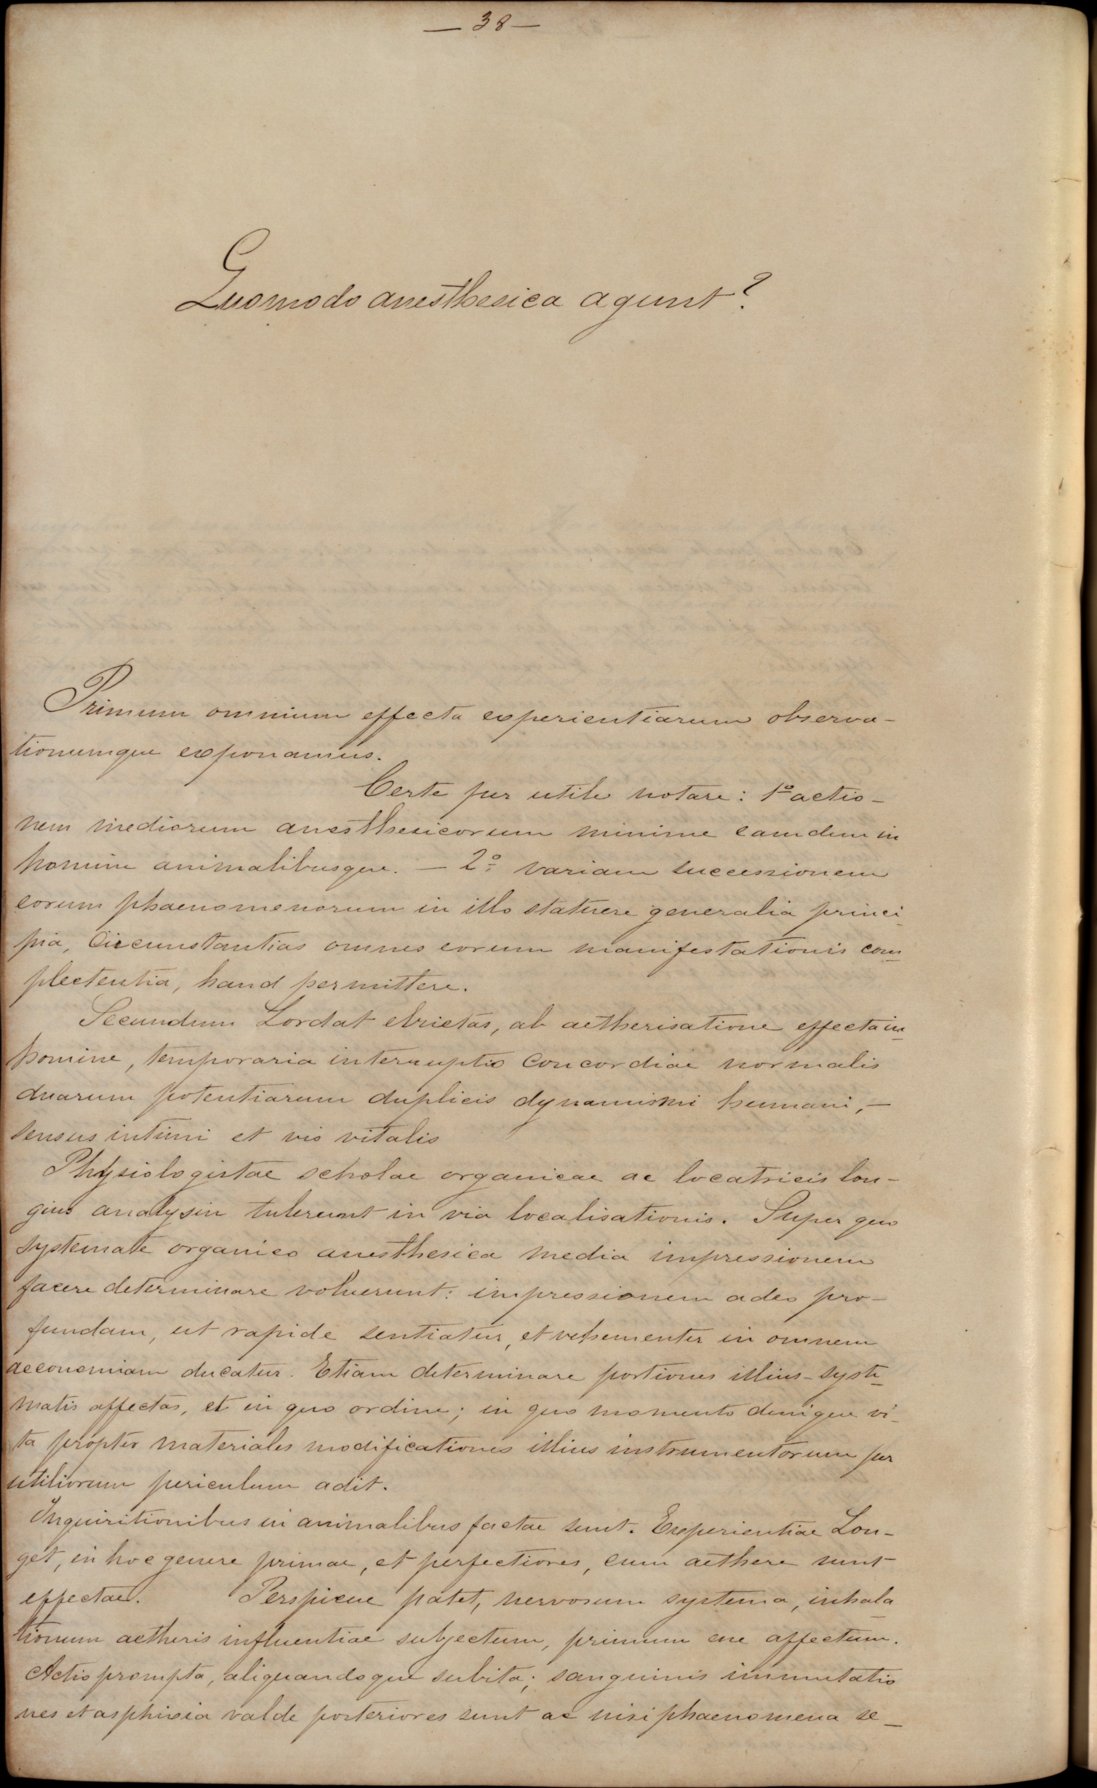 — 38 —
Quomodo anesthesica agunt?
Primum omnium effecta experientiarum observa-
tionumque exponamus.
Certe per utile notare: 1º actio-
nem mediorum anesthesicorum minime eamdem in
homine animalibusque. — 2º variam successionem
eorum phaenomenorum in illo statuere generalia princi-
pia, circumstantias omnes eorum manifestationis com
plectentia, haud permittere.
Secundum Lordat ebrietas, ab aetherisatione effecta in
homine, temporaria interruptio concordiae normalis
duarum potentiarum duplicis dynamismi humani, —
sensus intimi et vis vitalis
Physiologistae scholae organicae ac locatricis lon-
gius analysin tulerunt in via localisationis. Super quo
systemate organico anesthesica media impressionem
facere determinare voluerunt: impressionem adeo pro-
fundam, ut rapide sentiatur, et vehementer in omnem
aeconomiam ducatur. Etiam determinare portiones illius syste
matis affectas, et in quo ordine; in quo momento denique vi-
ta propter materiales modificationes illius instrumentorum per
utiliorum periculum adit.
Inquiritionibus in animalibus factae sunt. Experientiae Lon-
get, in hoc genere primae, et perfectiores, cum aethere sunt
effectae. Perspicue patet, nervosum systema, inhala
tionum aetheris influentiae subjectum, primum esse affectum.
Actio prompta, aliquandoque subita; sanguinis immutatio
nes et asphixia valde posteriores sunt ac nisi phaenomena se-